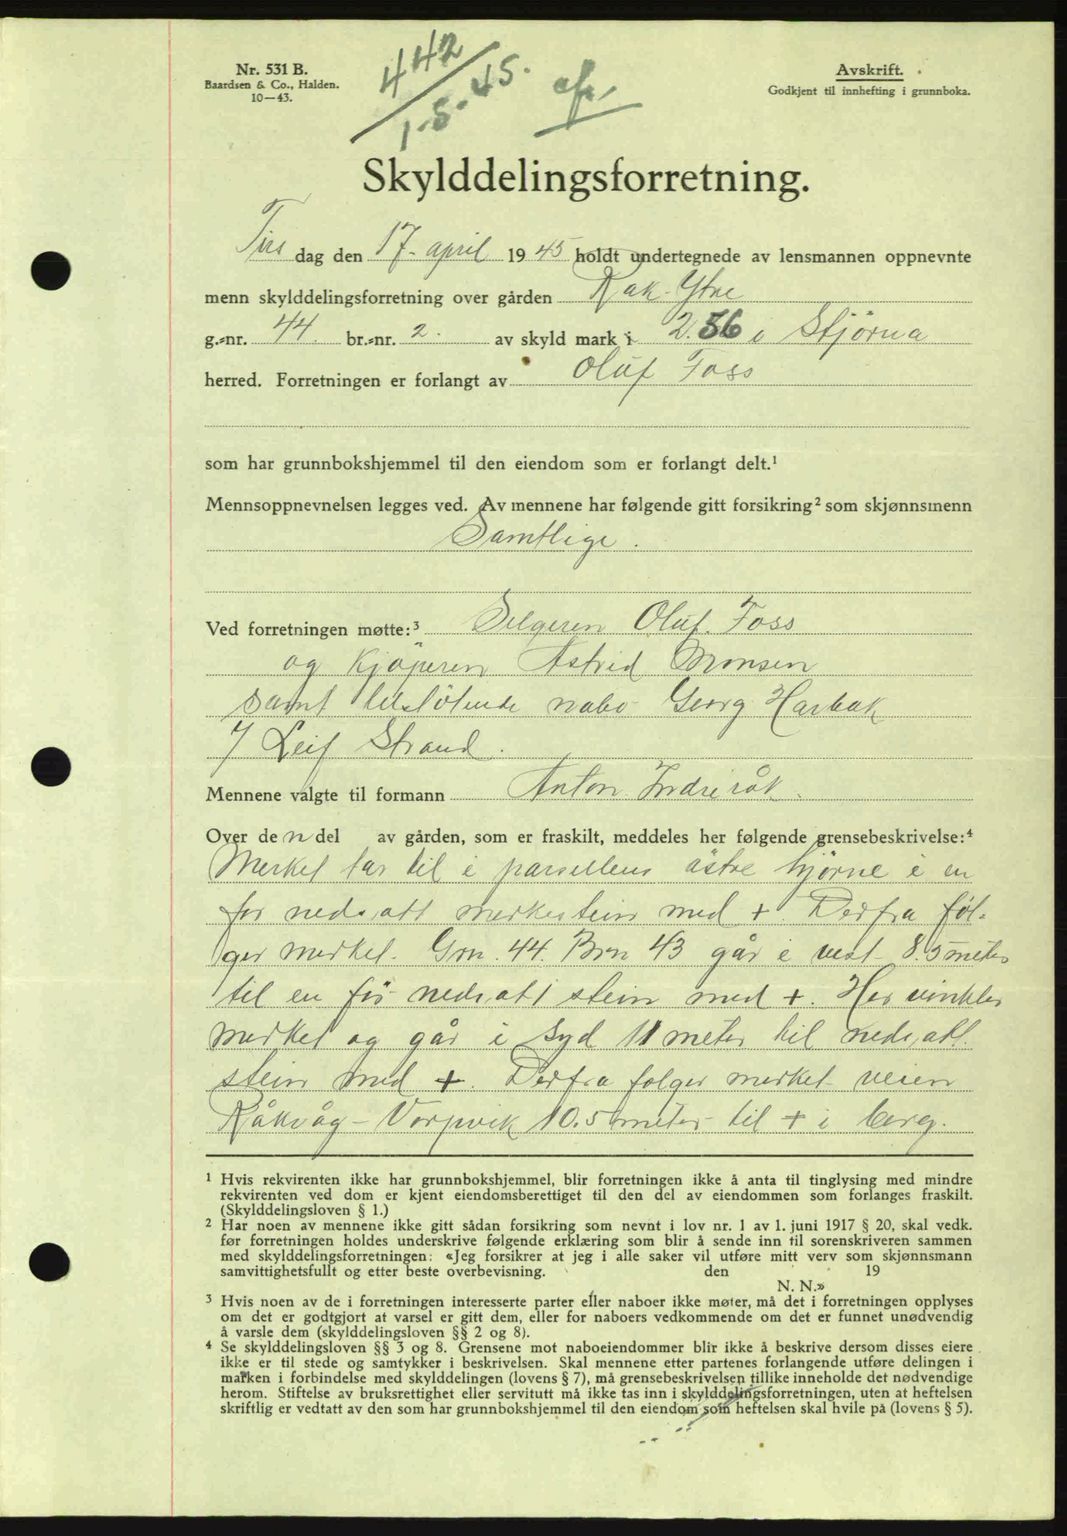 Nr. 531 B.
Baardsen & Co., Halden.
10—43.
442
1-5-45.
Avskrift.
Godkjent til innhefting i grunnboka.
Skylddelingsforretning.
Tirs dag den 17. april 1945 holdt undertegnede av lensmannen oppnevnte
menn skylddelingsforretning over gården Råk-Ytre
g.-nr. 44. br.-nr. 2. av skyld mark i 2.56 i Stjørna
herred. Forretningen er forlangt av Oluf Foss
som har grunnbokshjemmel til den eiendom som er forlangt delt.¹
Mennsoppnevnelsen legges ved. Av mennene har følgende gitt forsikring² som skjønnsmenn
Samtlige.
Ved forretningen møtte:³ Selgeren Oluf Foss
og kjøperen Astrid Monsen
samt tilstøtende nabo Georg Harbak
Leif Strand.
Mennene valgte til formann Anton Indreråk.
Over den del av gården, som er fraskilt, meddeles her følgende grensebeskrivelse:⁴
Merket tar til i parsellens östre hjørne i en
for nedsatt merkestein med + Derfra föl-
ger merket. Grn. 44 Brn 43 går i vest 8.5 meter
til en för nedsatt stein med +. Her vinkler
merket og går i Syd 11 meter til nedsatt
stein med +. Derfra følger merket veien
Råkvåg - Vorpvik 10.5 meter til + i berg.
¹ Hvis rekvirenten ikke har grunnbokshjemmel, blir forretningen ikke å anta til tinglysing med mindre
rekvirenten ved dom er kjent eiendomsberettiget til den del av eiendommen som forlanges fraskilt.
(Skylddelingsloven § 1.)
² Har noen av mennene ikke gitt sådan forsikring som nevnt i lov nr. 1 av 1. juni 1917 § 20, skal vedk.
før forretningen holdes underskrive følgende erklæring som blir å sende inn til sorenskriveren sammen
med skylddelingsforretningen: «Jeg forsikrer at jeg i alle saker vil utføre mitt verv som skjønnsmann
samvittighetsfullt og etter beste overbevisning. den 19
N. N.»
³ Hvis noen av de i forretningen interesserte parter eller naboer ikke møter, må det i forretningen opplyses
om det er godtgjort at varsel er gitt dem, eller for naboers vedkommende om det er funnet unødvendig
å varsle dem (skylddelingsloven §§ 2 og 8).
⁴ Se skylddelingsloven §§ 3 og 8. Grensene mot naboeiendommer blir ikke å beskrive dersom disses eiere
ikke er til stede og samtykker i beskrivelsen. Skal mennene etter partenes forlangende utføre delingen i
marken i forbindelse med skylddelingen (lovens § 7), må grensebeskrivelsen tillike inneholde det nødvendige
herom. Stiftelse av bruksrettighet eller servitutt må ikke tas inn i skylddelingsforretningen, uten at heftelsen
skriftlig er vedtatt av den som har grunnbokshjemmel til den eiendom som heftelsen skal hvile på (lovens § 5).